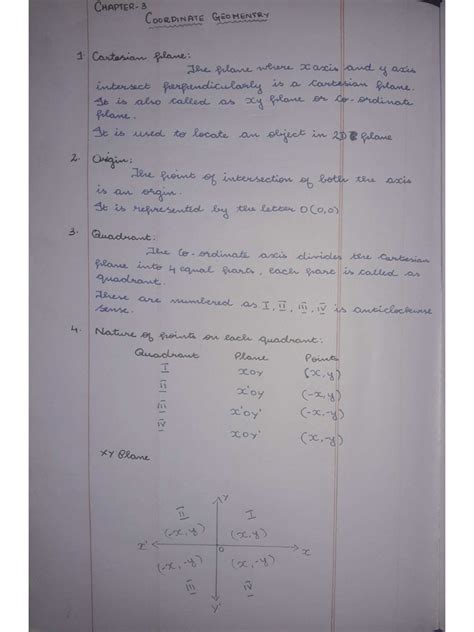 CHAPTER-3
COORDINATE GEOMENTRY
1 Cartesian plane:
The plane where x axis and y axis
intersect perpendicularly is a Cartesian plane.
It is also called as xy plane or Co-ordinate
plane.
It is used to locate an object in 2D plane
2. Origin:
The point of intersection of both the axis
is an orgin.
It is represented by the letter O(0,0)
3. Quadrant:
The Co-ordinate axis divides the Cartesian
plane into 4 equal parts, each part is called as
quadrant.
There are numbered as I, II, III, IV is anticlockwise
sense.
4. Nature of points on each quadrant:
Quadrant Plane Points
I XOY (x,y)
II X'OY (-x,y)
III X'OY' (-x,-y)
IV XOY' (x,-y)
XY Plane
Y
II I
(-x,y) (x,y)
X' O X
(-x,-y) (x,-y)
III IV
Y'